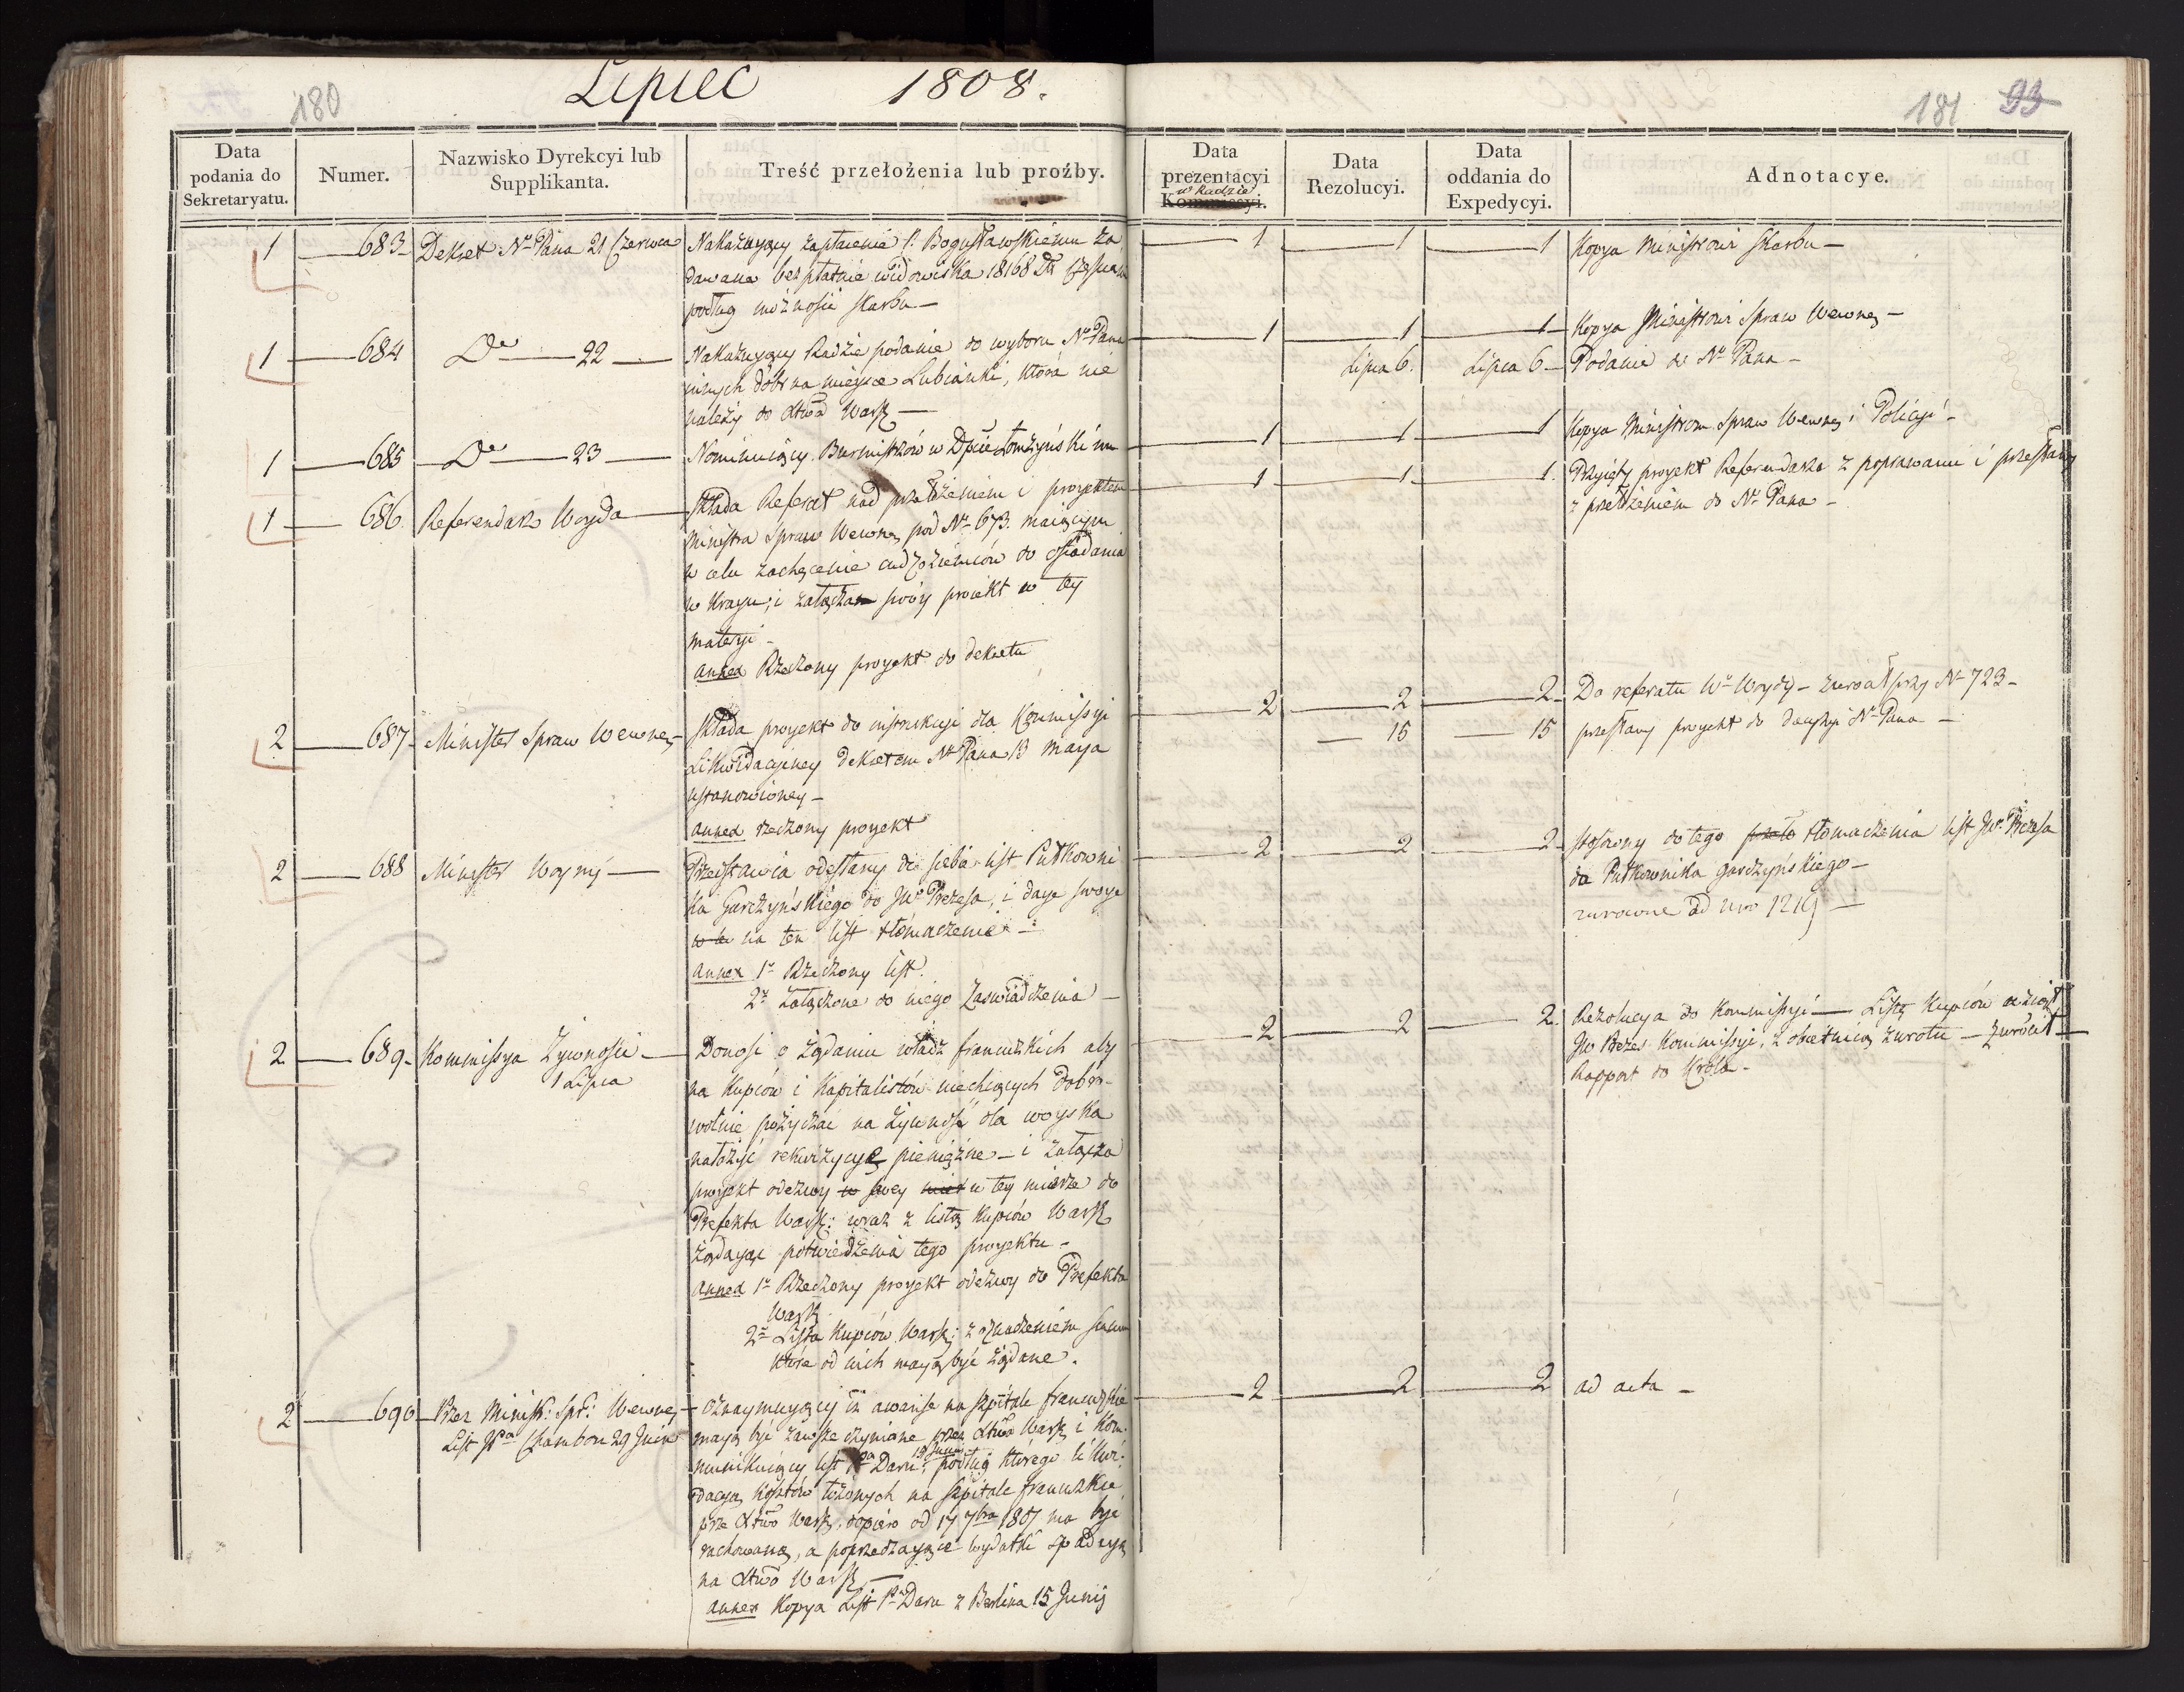 180
Lipiec 1808.
181 93
Data podania do Sekretaryatu.
Numer.
Nazwisko Dyrekcyi lub Supplikanta.
Treść przełożenia lub proźby.
Data prezentacyi w Radzie Kommissyi.
Data Rezolucyi.
Data oddania do Expedycyi.
Adnotacye.
1 683 Dekret Nº Pana 21 Czerwca
Nakazuiący zapłacenie P. Bogusławskiemu za
dawane bezpłatnie widowiska 18168
podług możności skarbu
1 1 1 Kopya Ministrowi Skarbu
1 684 Dº 22
Nakazuiący Radzie podanie do wyboru Nº Pana
innych dóbr na mieysce Lubianki, która nie
należy do Xtwa Warsz
1 1 1 Kopya Ministrowi Spraw Wewnę
Lipca 6. Lipca 6 Podanie do Nº Pana
1 685 Dº 23
Nominuiący Burmistrzów w Dpcie Łomżyńskim
1 1 1 Kopya Ministrom Spraw Wewnę i Policyi
1 686. Referendarz Woyda
Składa Referat nad przełożeniem i proyektem
Ministra Spraw Wewnę pod Nº 673. maiącym
w celu zachęcenie cudzoziemców do osiadania
w Kraju, i załącza swóy proiekt w tey
materyi
annex Rzeczony proyekt do dekretu
1 1 1. Przyięty proyekt Referendarza z poprawami i przesłany
z przełożeniem do Nº Pana
2 687 Minister Spraw Wewnę
Składa proyekt do instrukcyi dla Kommissyi
Likwidacyiney dekretem Nº Pana 13 Maya
ustanowioney
annex rzeczony proyekt
2 2 2 Do referatu Wº Woydy - zwrócił przy Nº 723
15 15 przesłany proyekt do decyzyi Nº Pana
2 688 Minister Woyny
Przedstawia odesłany do siebie list Pułkowni
ka Garczyńskiego do JWº Prezesa, i daye swoye
na ten list tłómaczenie
annex 1º Rzeczony list.
2º Załączone do niego Zaświadczenia
2 2 2 Stosowny do tego tłomaczenia list JWº Prezesa
do Pułkownika Garczyńskiego
zwrocone ad nro 1219
2 689 Kommissya Żywności
1 Lipca
Donosi o żądaniu władz francuzkich aby
na Kupców i Kapitalistów niechcących dobro-
wolnie pożyczać na żywność dla woyska
nałożyć rekwizycyę pieniężne - i załącza
proyekt odezwy w swey w tey mierze do
Prefekta Warsz: wraz z listą Kupców Warsz
żądayąc potwierdzenia tego proyektu
annex 1º Rzeczony proyekt odezwy do Prefekta
Warsz
2º Lista Kupców Warsz: z oznaczeniem summ
które od nich mayą być żądane.
2 2 2. Rezolucya do Kommissyi - Listę Kupców wziął
JW Prezes Kommissyi, z obietnicą zwrotu - zwrócił
Rapport do Króla
2 690 Przez Ministr: Spr: Wewnę
List Pª Chambon 29 Junii
oznaymuiący iż awanse na szpitale francuzkie
mayą być zawsze czynione przez Xtwo Warsz i Kom-
munikuiący list Pª Daru 15 Junii, podług którego likwi-
dacya kosztów łożonych na szpitale francuzkie
prze Xtwo Warsz. dopiero od 17 7bra 1807 ma być
rachowaną, a poprzedzayące wydatki spadayą
na Xtwo Warsz
annex Kopya List Pª Daru z Berlina 15 Junij
2 2 2 ad acta